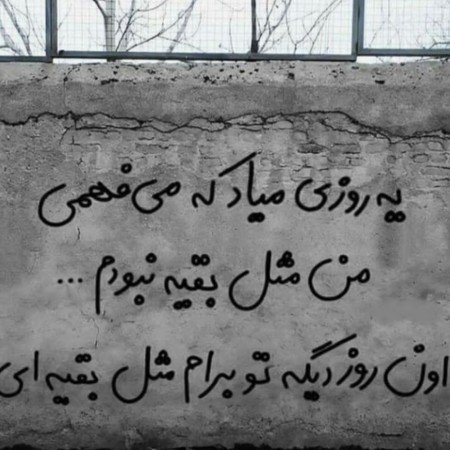 یه روزی میاد که می‌فهمی
من مثل بقیه نبودم ...
اون روز دیگه تو برام مثل بقیه ای